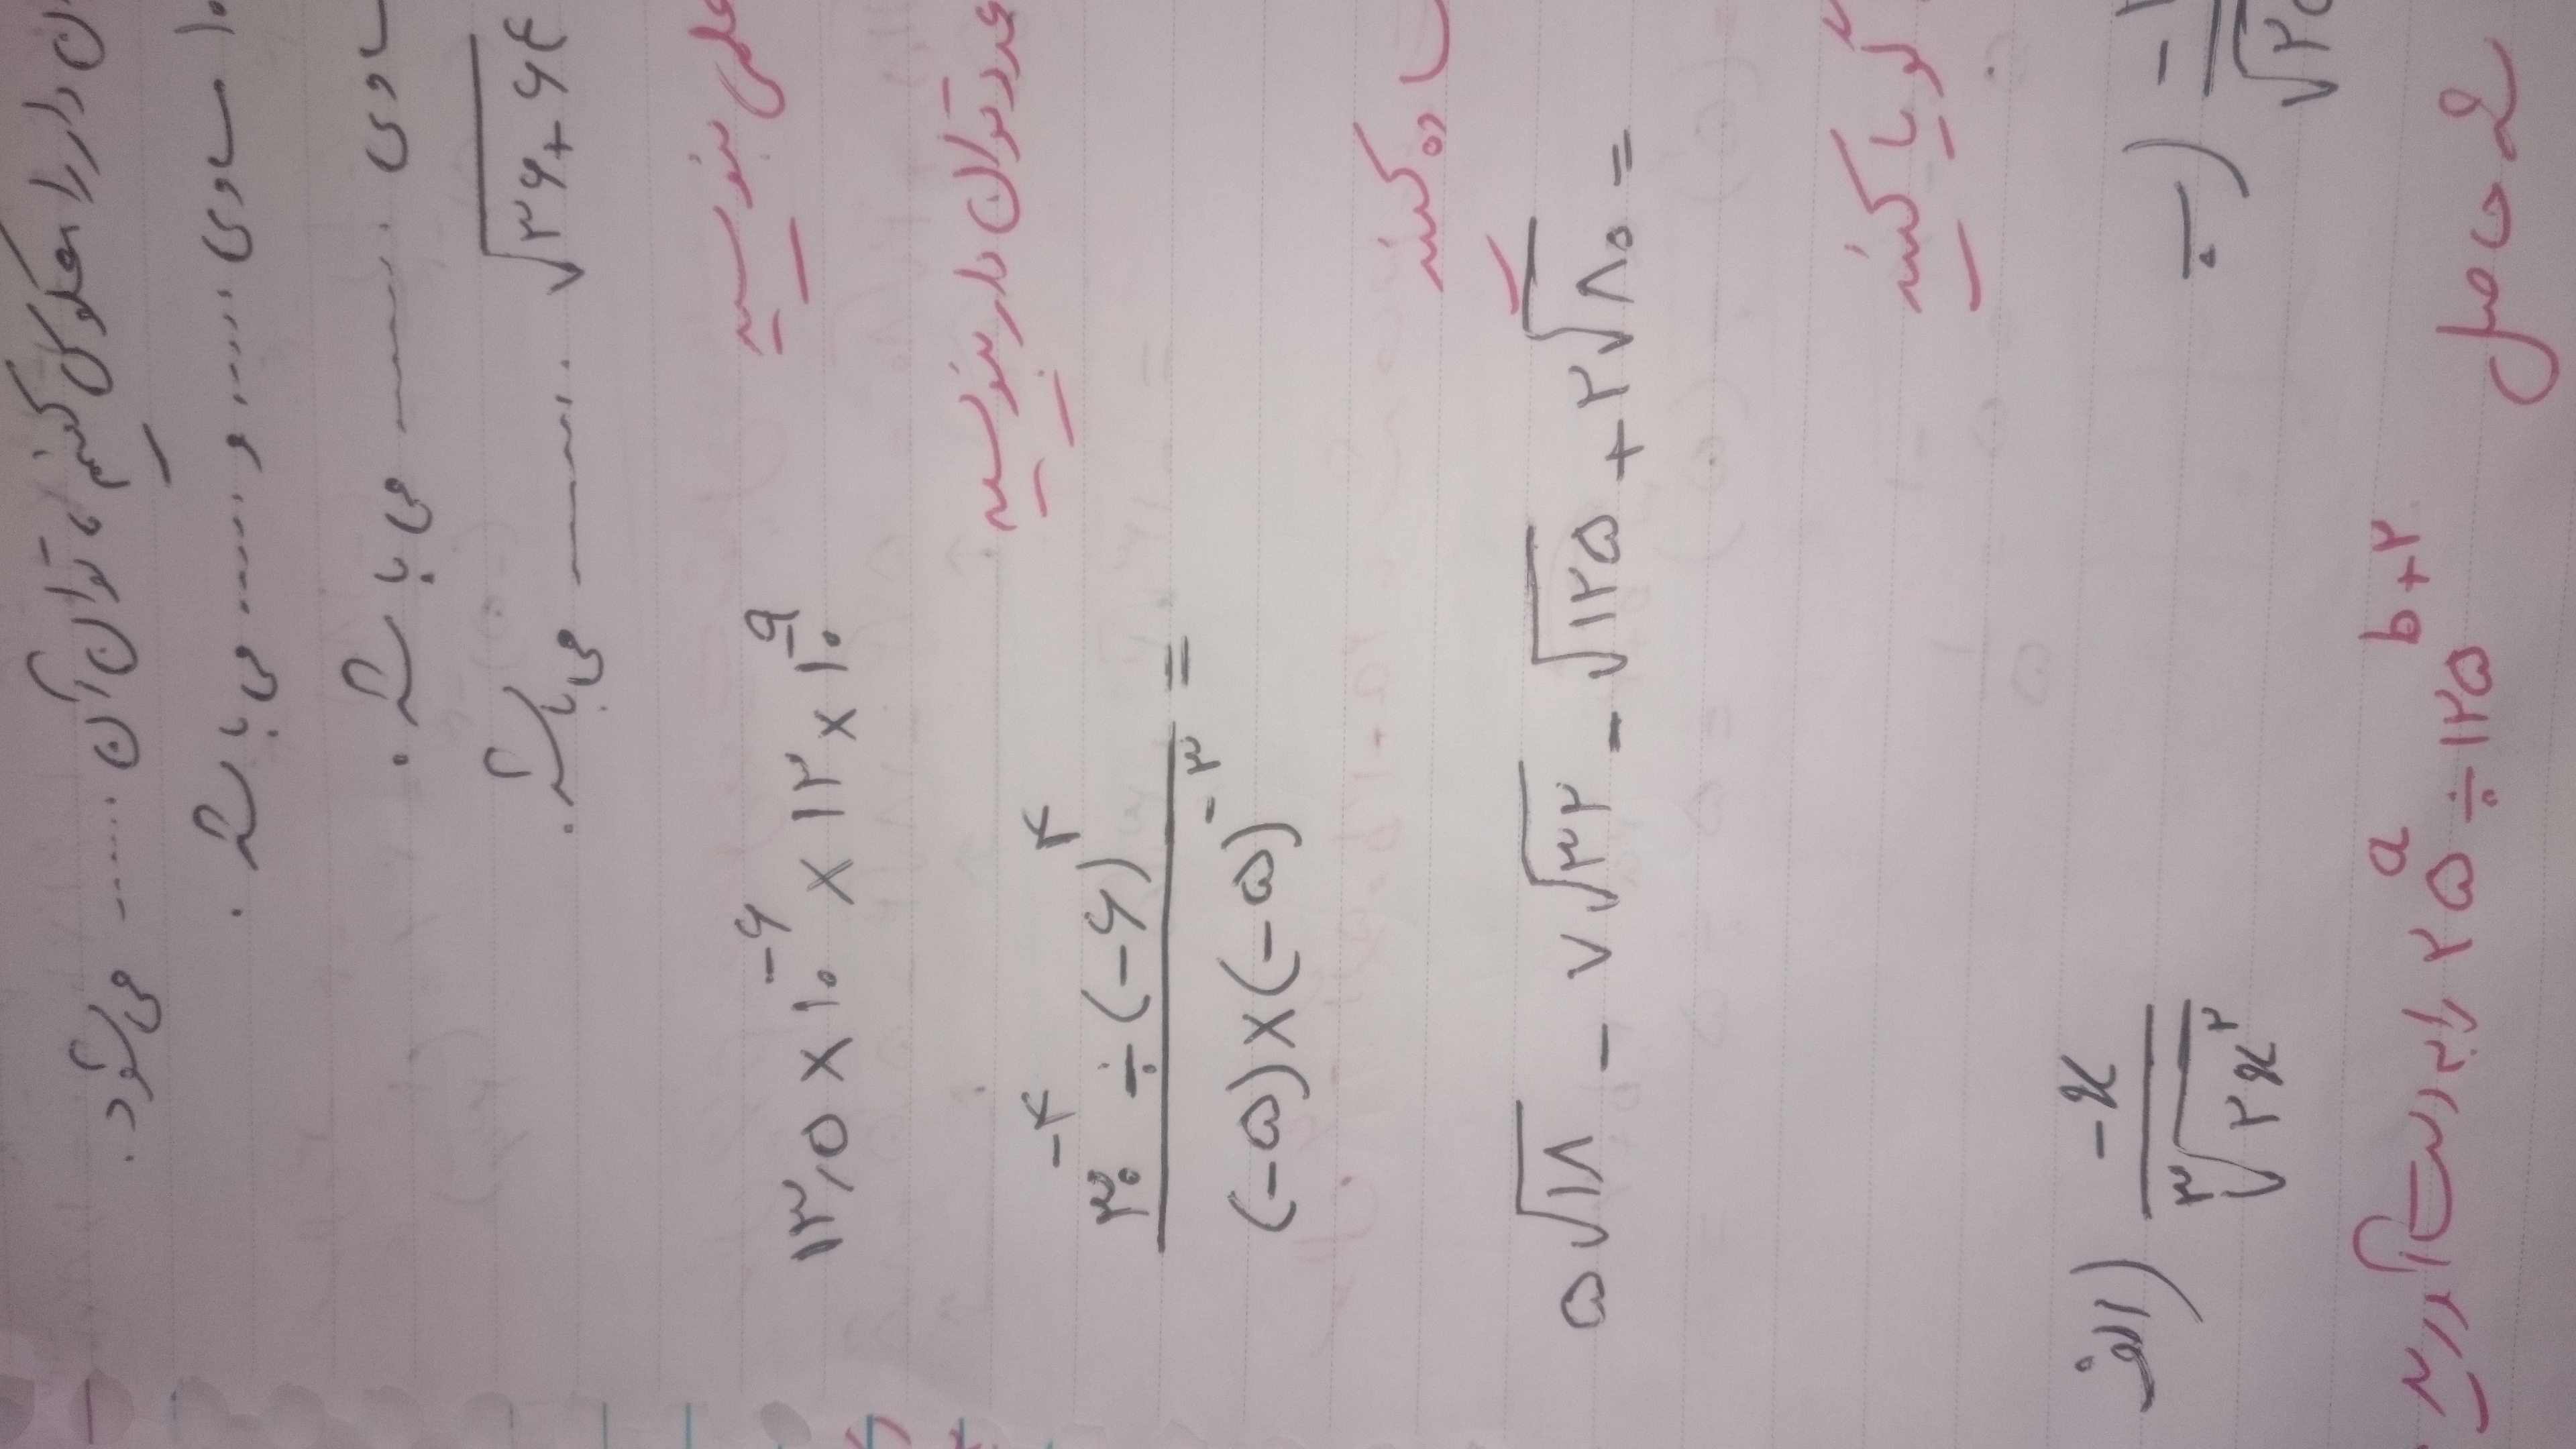 ن دار را معکوس کنیم ، توان آن ...... می شود .
۱۰ مساوی ..... و ...... می باشد .
ساوی ........ می باشد .
√۳۶+۶۴ ........ می باشد .
علمی بنویسید
۱۳٫۵ × ۱۰^-۶ × ۱۲ × ۱۰^-۹
عدد توان دار بنویسید
۳۰^-۴ ÷ (-۶)^۴
(-۵) × (-۵)^-۳ =
ساده کنید
۵√۱۸ - ۷√۳۲ - √۱۲۵ + ۲√۸۰ =
گویا کنید
الف) -x / ∛۲x^۲ ب)
شد حاصل ۲۵^a ÷ ۱۲۵^b+۲ را به دست آورید .